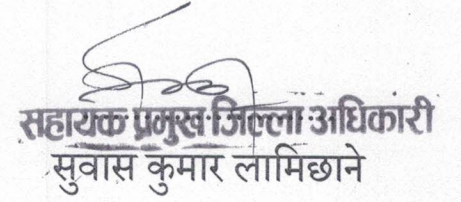 सहायक प्रमुख जिल्ला अधिकारी
सुवास कुमार लामिछाने